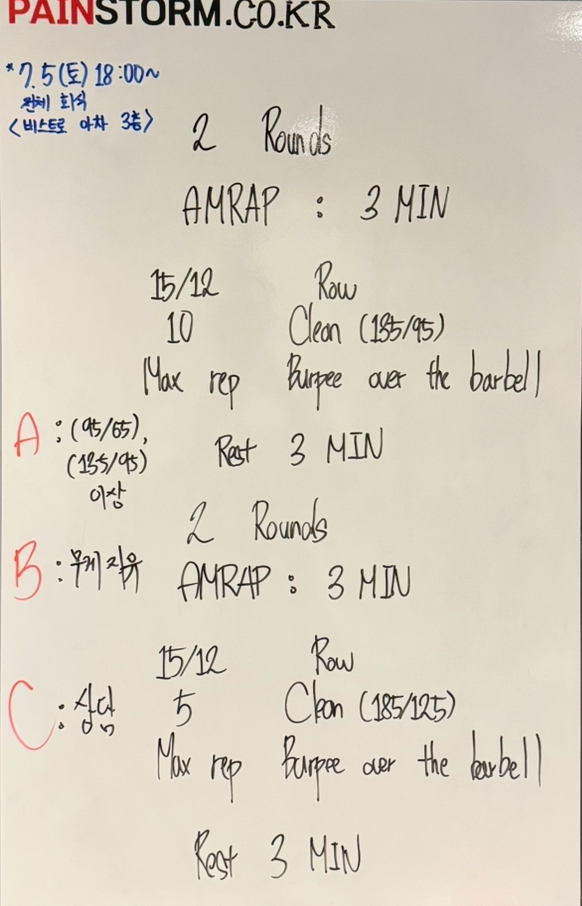 PAINSTORM.CO.KR
*7.5(토) 18:00~
전체 회식
<비스트로 아차 3층>
2 Rounds
AMRAP : 3 MIN
15/12 Row
10 Clean (135/95)
Max rep Burpee over the barbell
Rest 3 MIN
A : (95/65),
(135/95)
이상
2 Rounds
B : 무게 자유
AMRAP : 3 MIN
15/12 Row
5 Clean (185/125)
C : 상담
Max rep Burpee over the barbell
Rest 3 MIN